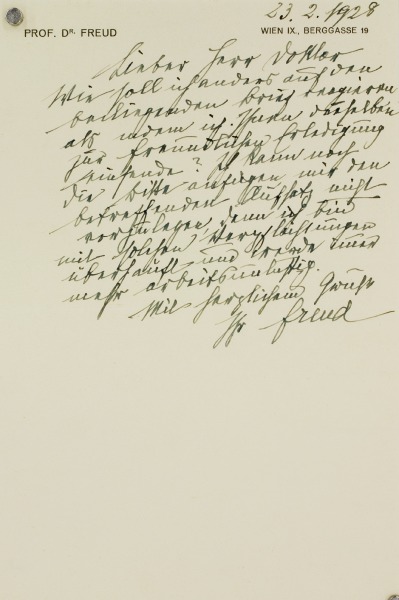 23. 2. 1928
PROF. DR. FREUD WIEN IX., BERGGASSE 19
Lieber Herr Doktor
Wie soll ich anders auf den
beiliegenden Brief reagieren
als indem ich Ihnen denselben
zur freundlichen Erledigung
einsende? Ich kann noch
die Bitte anfügen mir den
betreffenden Aufsatz nicht
vorzulegen, denn ich bin
mit solchen Verpflichtungen
überhäuft und werde immer
mehr arbeitsunlustig.
Mit herzlichem Gruß
Ihr Freud